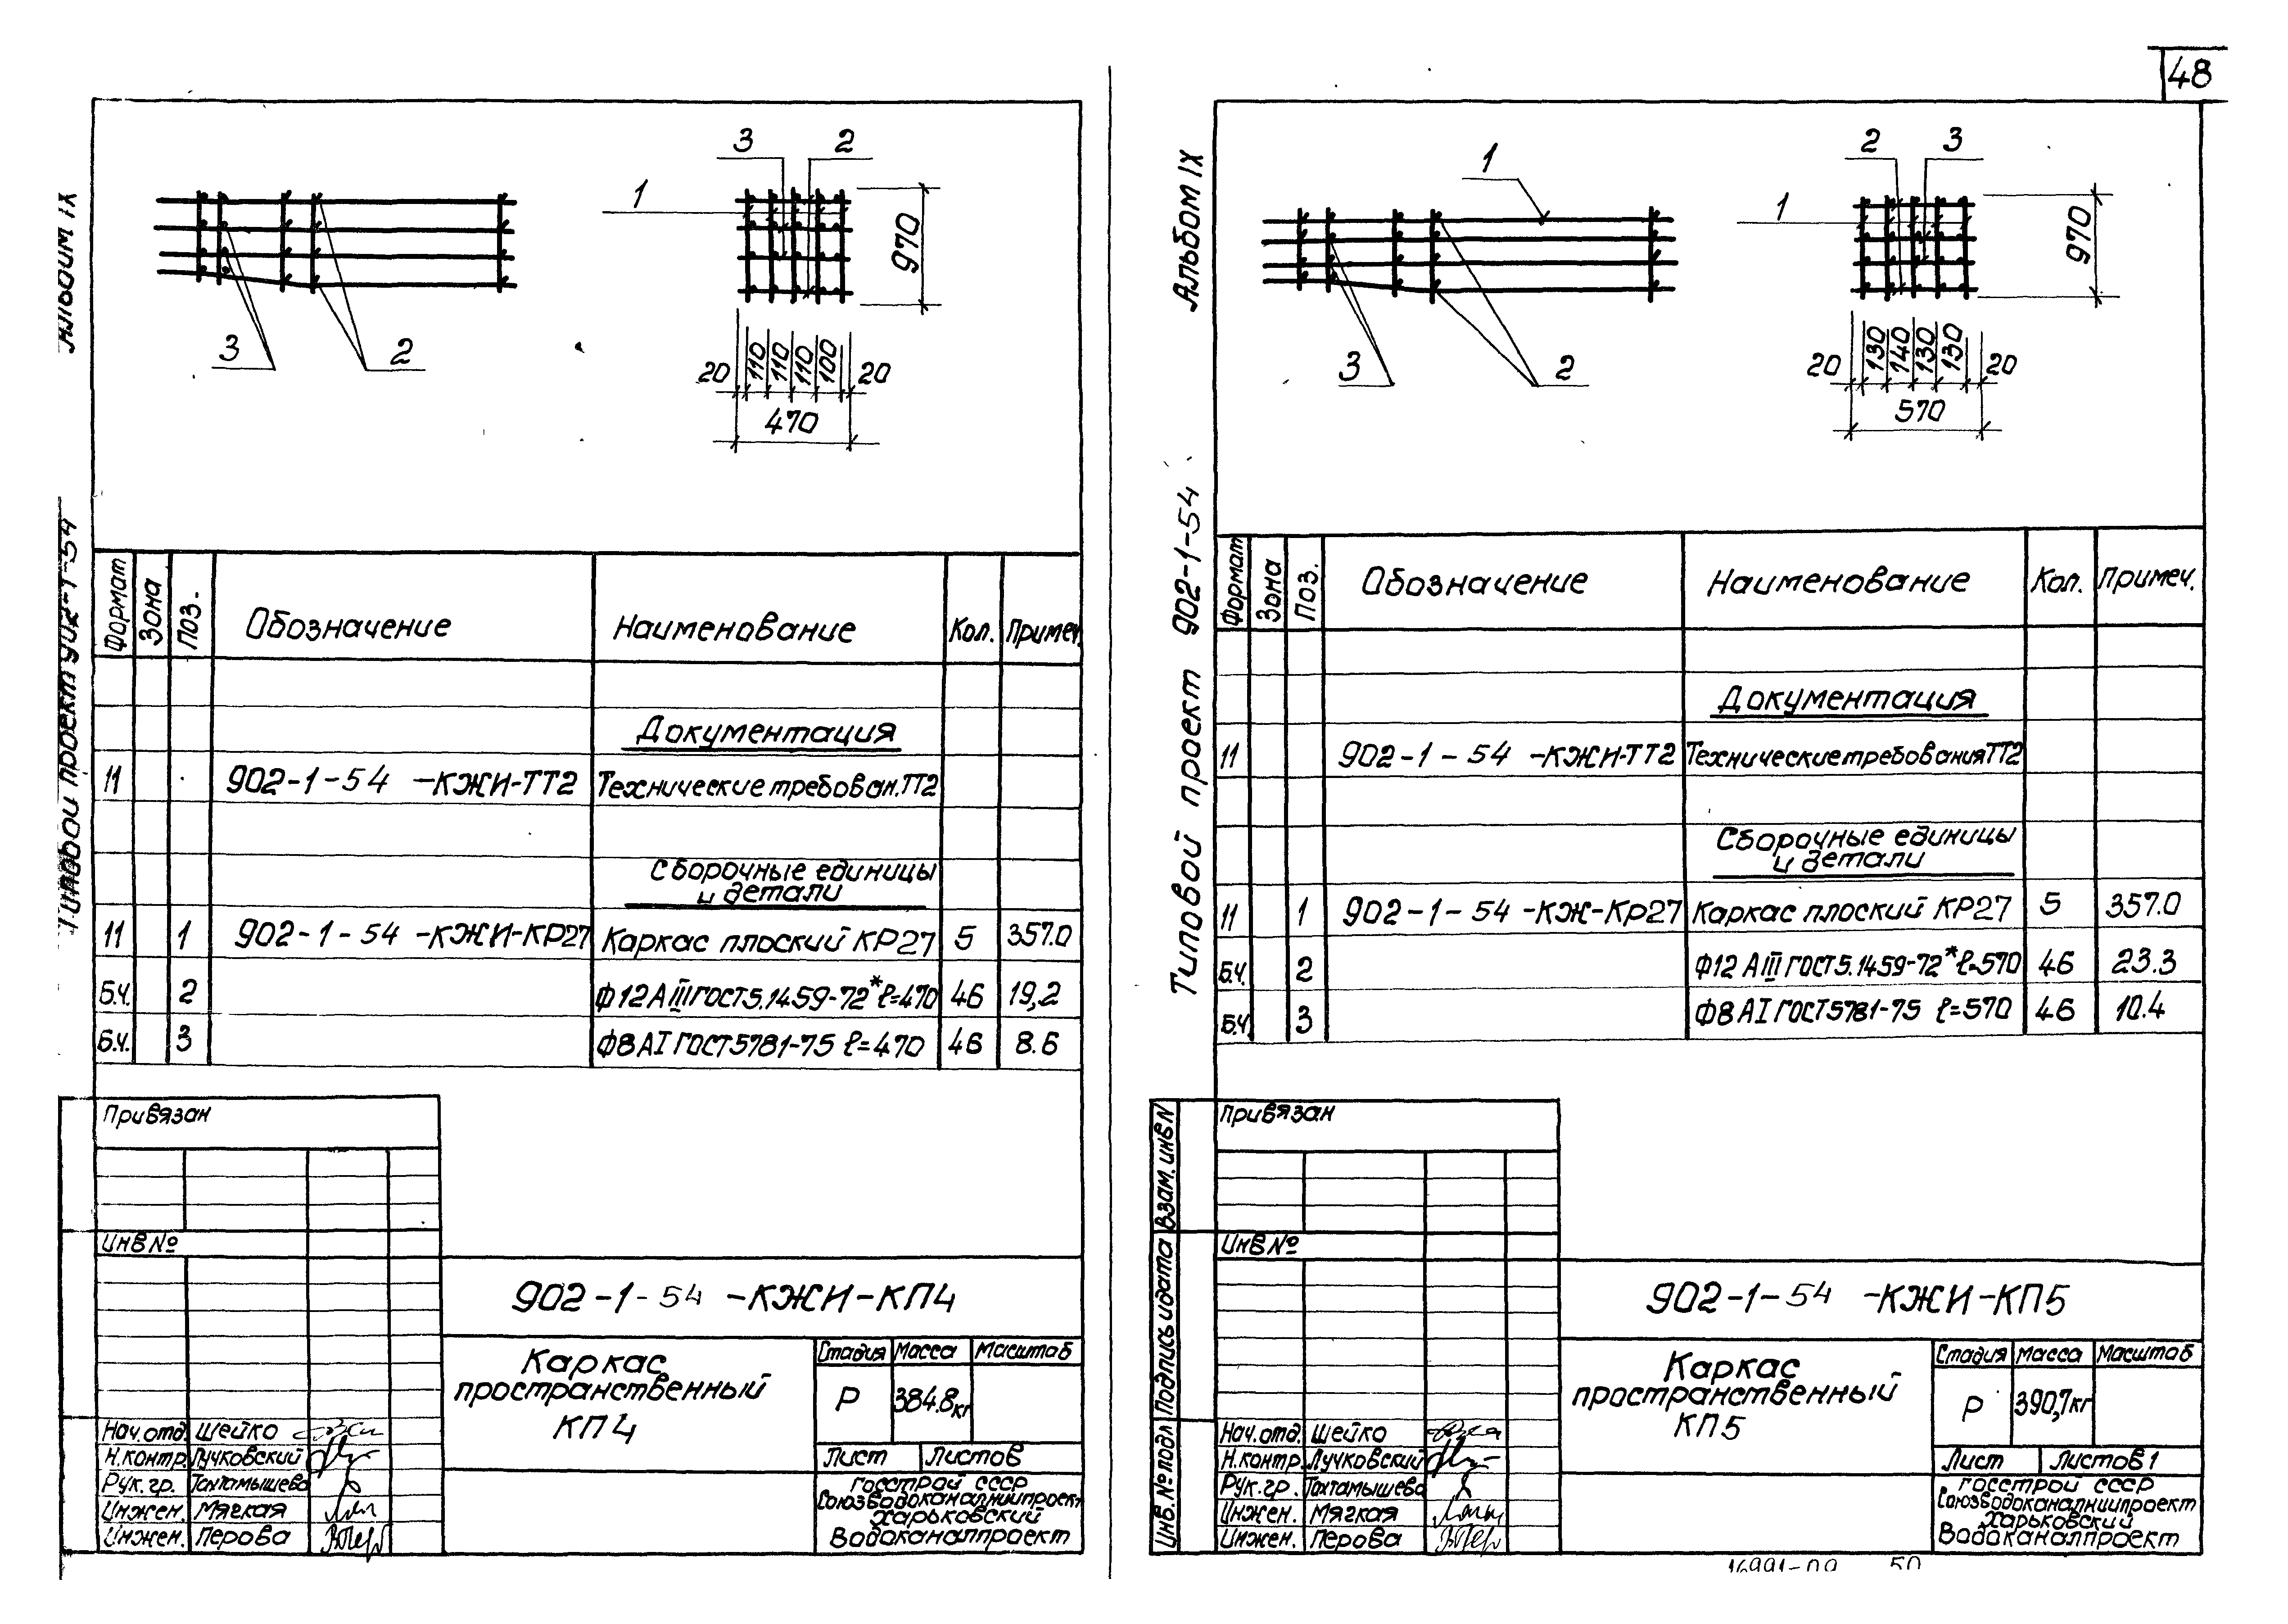 48
Альбом IX
Типовой проект 902-1-54
3 2
1
970
3 2
20 110 110 110 100 20
470
Формат Зона Поз. Обозначение Наименование Кол. Примеч.
Документация
11 902-1-54 -КЖИ-ТТ2 Технические требован.ТТ2
Сборочные единицы
и детали
11 1 902-1-54 -КЖИ-КР27 Каркас плоский КР27 5 357.0
Б.Ч. 2 Ф12АIII ГОСТ5.1459-72* ℓ=470 46 19,2
Б.Ч. 3 Ф8АI ГОСТ5781-75 ℓ=470 46 8.6
Привязан
Инв №
902-1-54 -КЖИ-КП4
Каркас
пространственный
КП4
Стадия Масса Масштаб
Р 384.8кг
Лист Листов
Нач.отд. Шейко
Н.контр. Лучковский
Рук.гр. Тахтамышева
Инжен. Мягкая
Инжен. Перова
Госстрой СССР
Союзводоканалниипроект
Харьковский
Водоканалпроект
Альбом IX
Типовой проект 902-1-54
1
2 3
1
970
3 2
20 130 140 130 130 20
570
Формат Зона Поз. Обозначение Наименование Кол. Примеч.
Документация
11 902-1-54 -КЖИ-ТТ2 Технические требования ТТ2
Сборочные единицы
и детали
11 1 902-1-54 -КЖ-КР27 Каркас плоский КР27 5 357.0
Б.Ч. 2 Ф12 АIII ГОСТ5.1459-72* ℓ=570 46 23.3
Б.Ч. 3 Ф8АI ГОСТ5781-75 ℓ=570 46 10.4
Привязан
Инв №
Инв. № подл Подпись и дата Взам. инв N
902-1-54 -КЖИ-КП5
Каркас
пространственный
КП5
Стадия Масса Масштаб
Р 390,7кг
Лист Листов 1
Нач.отд. Шейко
Н.контр. Лучковский
Рук.гр. Тахтамышева
Инжен. Мягкая
Инжен. Перова
Госстрой СССР
Союзводоканалниипроект
Харьковский
Водоканалпроект
16991-09 50